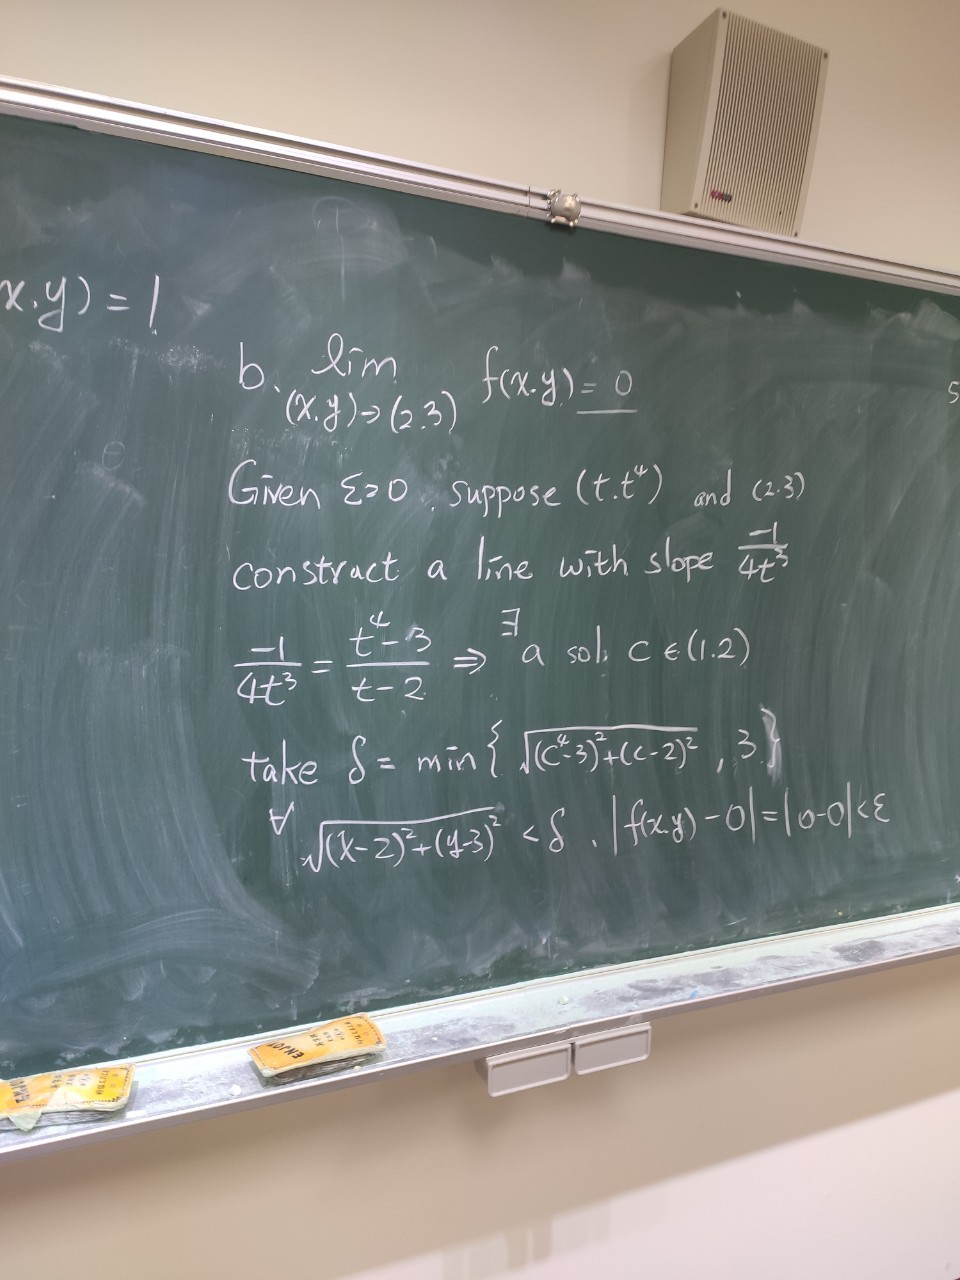 x.y) = 1
b. lim f(x.y) = 0
(x.y)→(2.3)
5
Given ε>0, suppose (t.t⁴) and (2.3)
construct a line with slope -1/4t³
-1/4t³ = t⁴-3/t-2 ⇒ ∃ a sol. c ∈ (1.2)
take δ = min{ √(c⁴-3)²+(c-2)² , 3 }
∀ √(x-2)²+(y-3)² < δ . |f(x.y) - 0| = |0-0| < ε
ENJOY